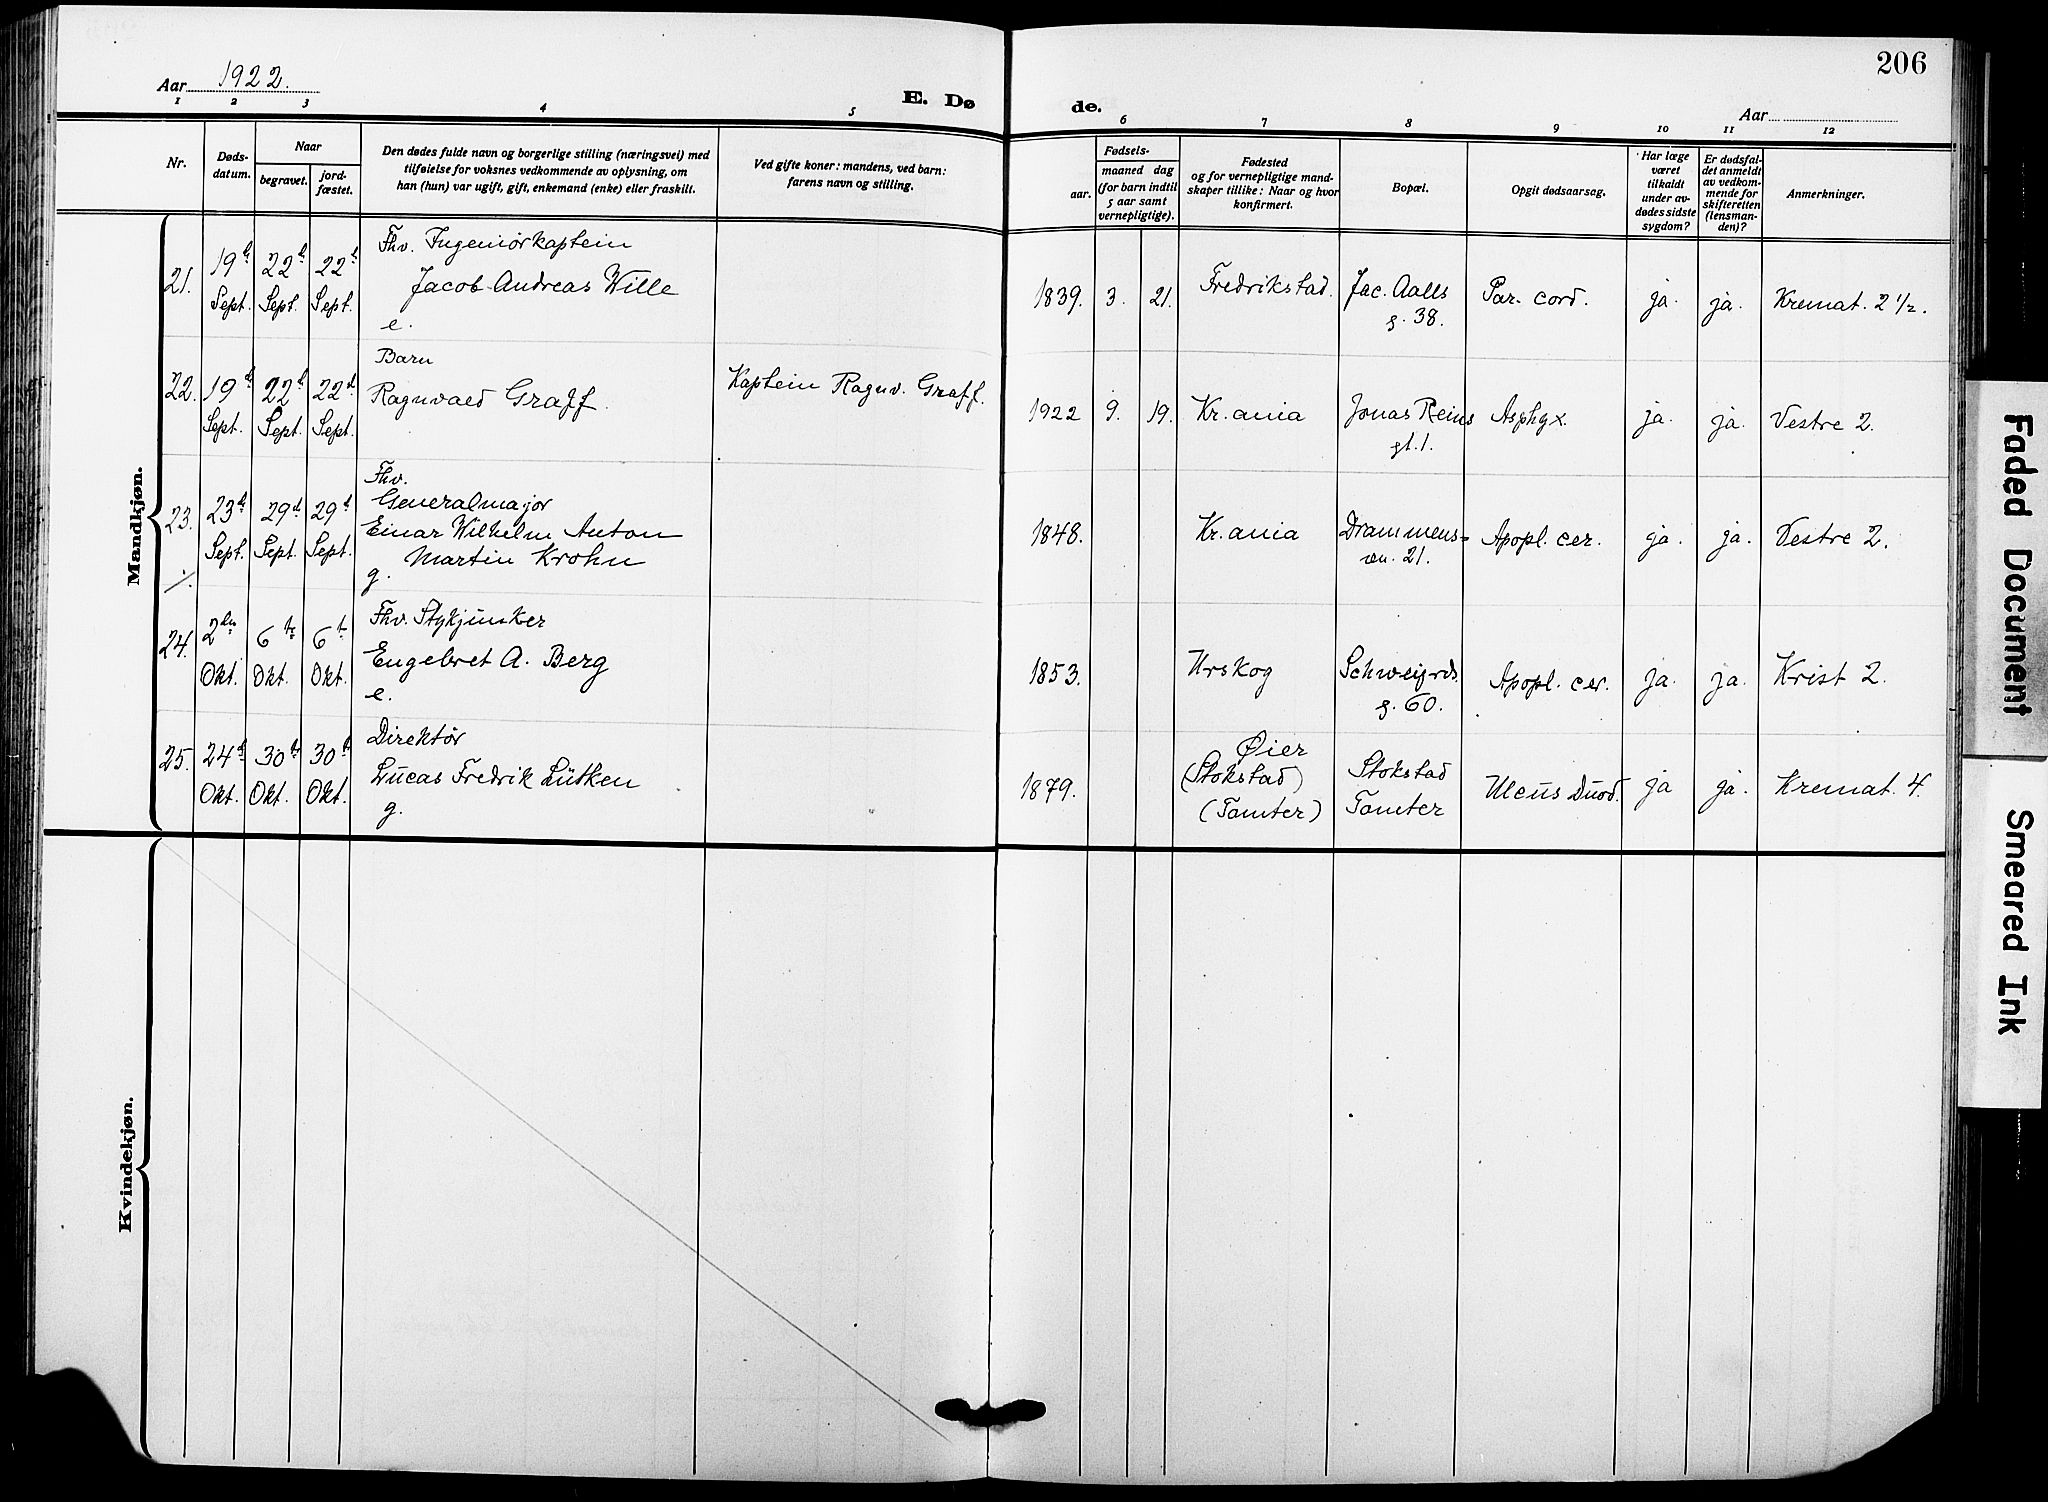 206
Aar 1922.
E. Dø de.
Aar
1 2 3 4 5 6 7 8 9 10 11 12
Nr.
Døds-
datum.
Naar
begravet.
jord-
fæstet.
Den dødes fulde navn og borgerlige stilling (næringsvei) med
tilføielse for voksnes vedkommende av oplysning, om
han (hun) var ugift, gift, enkemand (enke) eller fraskilt.
Ved gifte koner: mandens, ved barn:
farens navn og stilling.
Fødsels-
aar.
maaned dag
(for barn indtil
5 aar samt
vernepligtige).
Fødested
og for vernepligtige mand-
skaper tillike: Naar og hvor
konfirmert.
Bopæl.
Opgit dødsaarsag.
Har læge
været
tilkaldt
under av-
dødes sidste
sygdom?
Er dødsfal-
det anmeldt
av vedkom-
mende for
skifteretten
(lensman-
den)?
Anmerkninger.
Mandkjøn.
21.
19de
Sept.
22de
Sept.
22de
Sept.
Fhv. Ingeniørkaptein
Jacob Andreas Wille
e.
1839. 3. 21.
Fredrikstad.
Jac. Aalls
g. 38.
Par. cord.
ja. ja. Kremat. 2 1/2.
22.
19de
Sept.
22de
Sept.
22de
Sept.
Barn
Ragnvald Graff.
Kaptein Ragnv. Graff.
1922 9. 19. Kr.ania
Jonas Reins
gt. 1.
Asphyx.
ja. ja. Vestre 2.
23.
23de
Sept.
29de
Sept.
29de
Sept.
Fhv.
Generalmajor
Einar Wilhelm Anton
Martin Krohn
g.
1848. Kr.ania
Drammens-
vn. 21.
Apopl. cer. ja. ja. Vestre 2.
24.
2den
Okt.
6te
Okt.
6te
Okt.
Fhv. Stykjunker
Engebret A. Berg
e.
1853. Urskog
Schweigrds.
g. 60.
Apopl. cer. ja. ja. Krist 2.
25.
24de
Okt.
30te
Okt.
30te
Okt.
Direktør
Lucas Fredrik Lütken
g.
1879.
Øier
(Stokstad)
(Tomter)
Stokstad
Tomter
Ulcus Duod. ja ja. Kremat. 4.
Kvindekjøn.
Faded Document
Smeared Ink